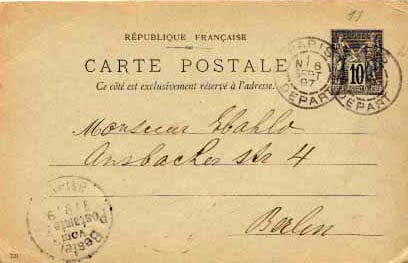 11
RÉPUBLIQUE FRANÇAISE
CARTE POSTALE
Ce côté est exclusivement réservé à l'adresse.
PARIS
8
SEPT
97
DEPART
DEPART
10
Monsieur Ebahlo
Ansbacher str 4
Berlin
Bestellt
vom
Postamte